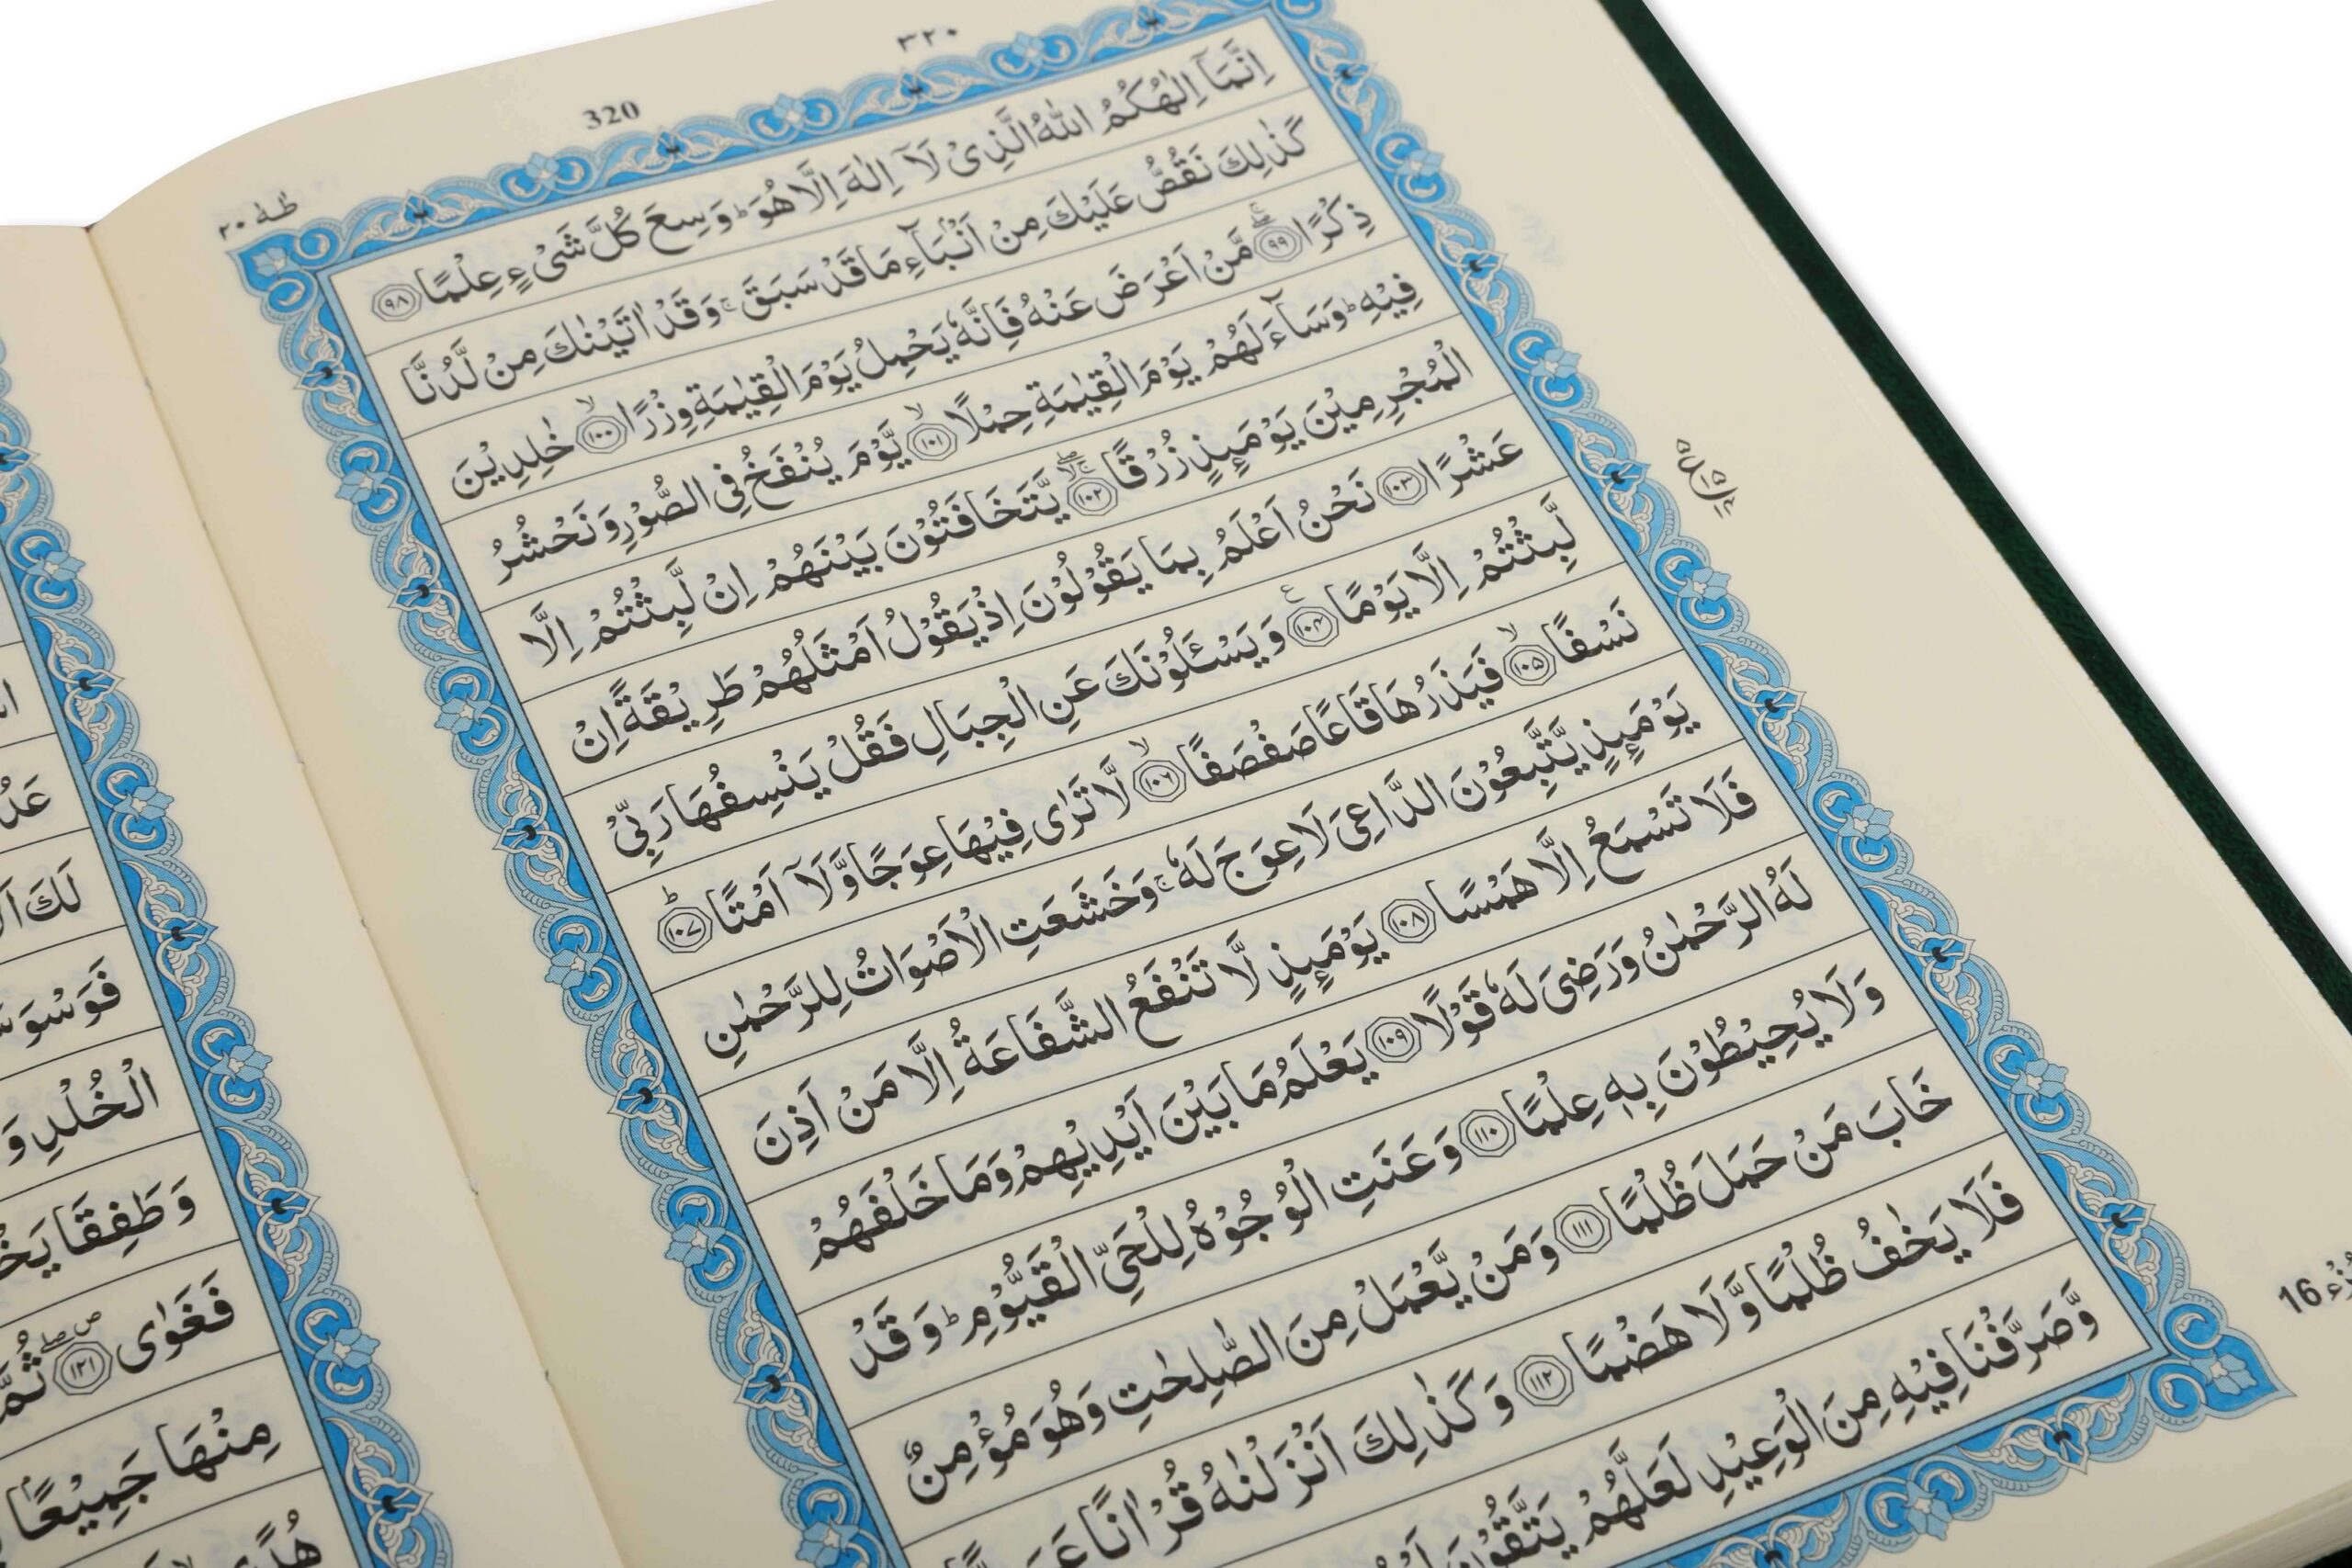 ٣٢٠
320
طٰهٰ ٢٠
اِنَّمَاۤ اِلٰهُكُمُ اللّٰهُ الَّذِىْ لَاۤ اِلٰهَ اِلَّا هُوَ ؕ وَسِعَ كُلَّ شَىْءٍ عِلْمًا ﴿٩٨﴾
كَذٰلِكَ نَقُصُّ عَلَيْكَ مِنْ اَنْۢبَآءِ مَا قَدْ سَبَقَ ۚ وَقَدْ اٰتَيْنٰكَ مِنْ لَّدُنَّا
ذِكْرًا ﴿٩٩﴾ مَّنْ اَعْرَضَ عَنْهُ فَاِنَّهٗ يَحْمِلُ يَوْمَ الْقِيٰمَةِ وِزْرًا ۙ﴿١٠٠﴾ خٰلِدِيْنَ
فِيْهِ ؕ وَسَآءَ لَهُمْ يَوْمَ الْقِيٰمَةِ حِمْلًا ۙ﴿١٠١﴾ يَّوْمَ يُنْفَخُ فِى الصُّوْرِ وَنَحْشُرُ
الْمُجْرِمِيْنَ يَوْمَئِذٍ زُرْقًا ﴿١٠٢﴾ يَّتَخَافَتُوْنَ بَيْنَهُمْ اِنْ لَّبِثْتُمْ اِلَّا
عَشْرًا ﴿١٠٣﴾ نَحْنُ اَعْلَمُ بِمَا يَقُوْلُوْنَ اِذْ يَقُوْلُ اَمْثَلُهُمْ طَرِيْقَةً اِنْ
لَّبِثْتُمْ اِلَّا يَوْمًا ﴿١٠٤﴾ وَيَسْـَٔلُوْنَكَ عَنِ الْجِبَالِ فَقُلْ يَنْسِفُهَا رَبِّىْ
نَسْفًا ۙ﴿١٠٥﴾ فَيَذَرُهَا قَاعًا صَفْصَفًا ۙ﴿١٠٦﴾ لَّا تَرٰى فِيْهَا عِوَجًا وَّلَاۤ اَمْتًا ؕ﴿١٠٧﴾
يَوْمَئِذٍ يَّتَّبِعُوْنَ الدَّاعِىَ لَا عِوَجَ لَهٗ ۚ وَخَشَعَتِ الْاَصْوَاتُ لِلرَّحْمٰنِ
فَلَا تَسْمَعُ اِلَّا هَمْسًا ﴿١٠٨﴾ يَوْمَئِذٍ لَّا تَنْفَعُ الشَّفَاعَةُ اِلَّا مَنْ اَذِنَ
لَهُ الرَّحْمٰنُ وَرَضِىَ لَهٗ قَوْلًا ﴿١٠٩﴾ يَعْلَمُ مَا بَيْنَ اَيْدِيْهِمْ وَمَا خَلْفَهُمْ
وَلَا يُحِيْطُوْنَ بِهٖ عِلْمًا ﴿١١٠﴾ وَعَنَتِ الْوُجُوْهُ لِلْحَىِّ الْقَيُّوْمِ ؕ وَقَدْ
خَابَ مَنْ حَمَلَ ظُلْمًا ﴿١١١﴾ وَمَنْ يَّعْمَلْ مِنَ الصّٰلِحٰتِ وَهُوَ مُؤْمِنٌ
فَلَا يَخٰفُ ظُلْمًا وَّلَا هَضْمًا ﴿١١٢﴾ وَكَذٰلِكَ اَنْزَلْنٰهُ قُرْاٰنًا
وَّصَرَّفْنَا فِيْهِ مِنَ الْوَعِيْدِ لَعَلَّهُمْ يَتَّقُوْنَ
16
لَكَ
فَوَسْوَسَ
الْخُلْدِ وَ
وَطَفِقَا
فَغَوٰى ﴿١٢١﴾ ثُمَّ
مِنْهَا جَمِيْعًا
هُدًى